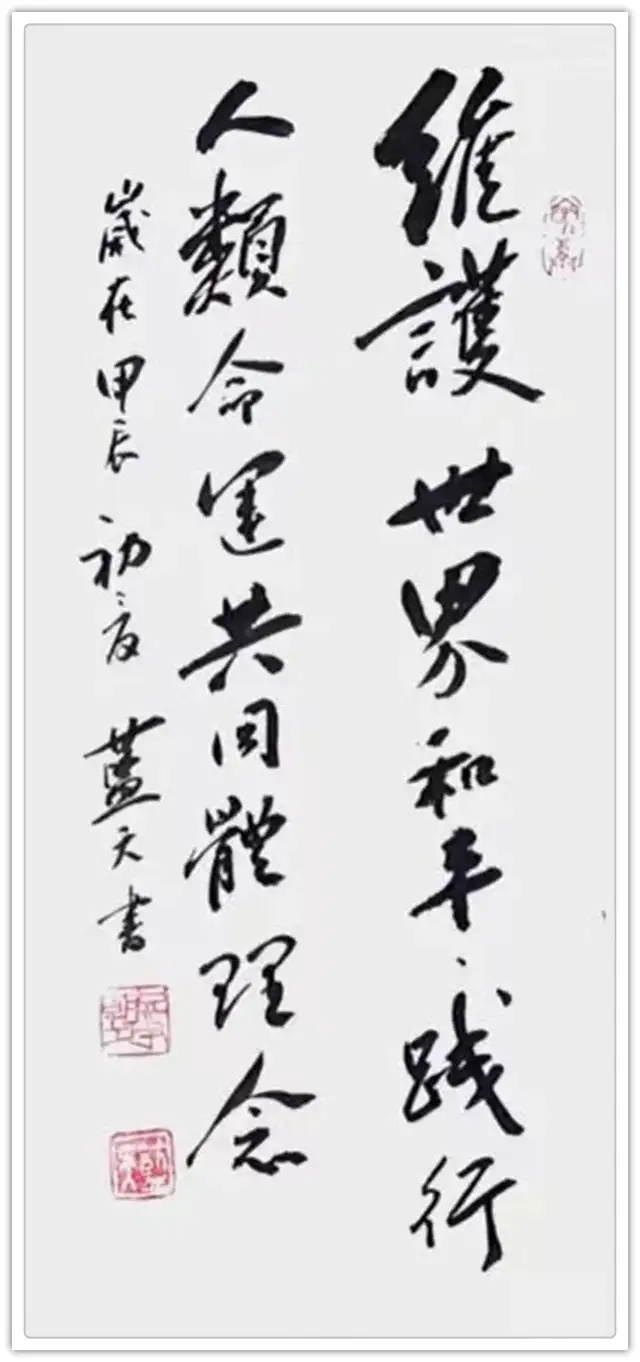 維護世界和平、践行
人類命運共同體理念
歲在甲辰初夏藍天書